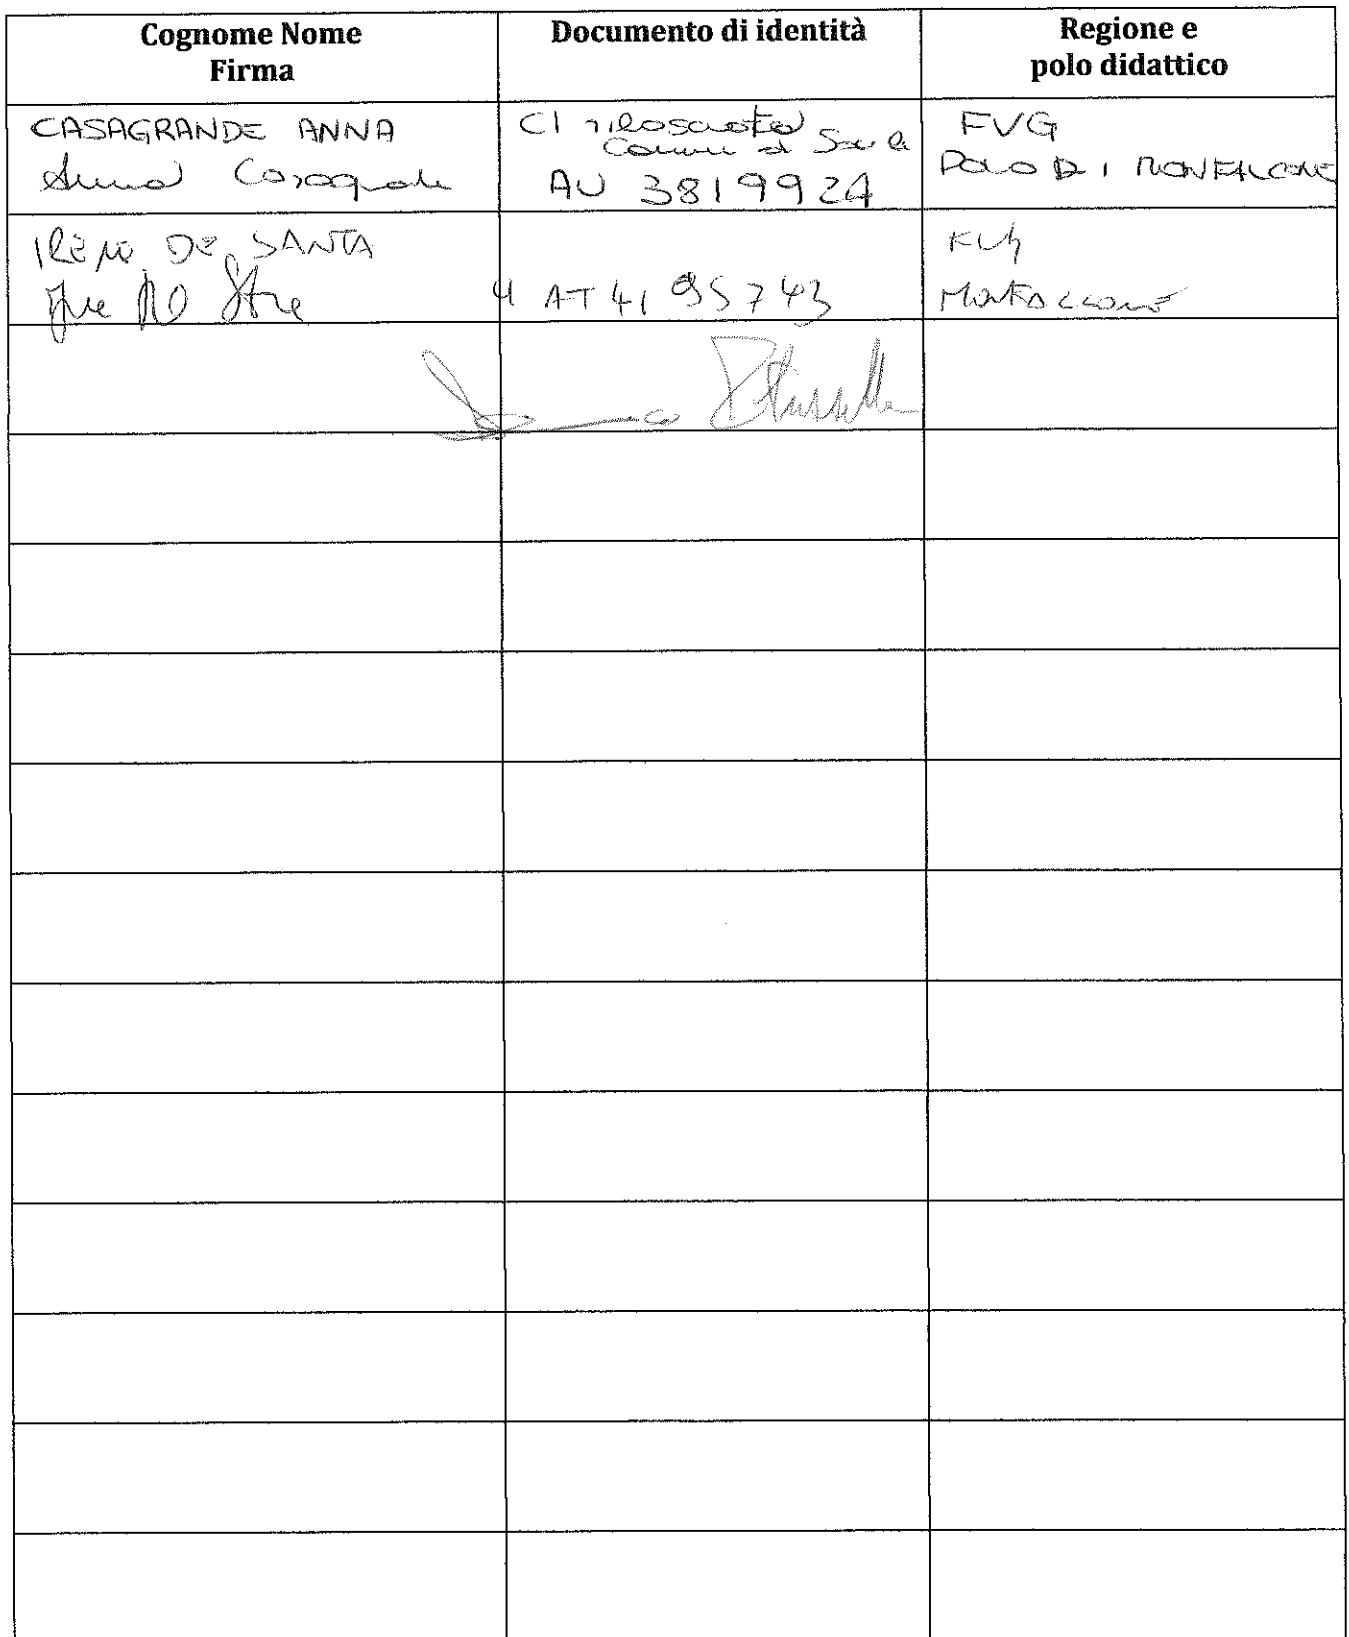 Cognome Nome
Firma
Documento di identità
Regione e
polo didattico
CASAGRANDE ANNA
Anna Casagrande
CI rilasciata
Comune di
AU 3819924
FVG
POLO DI MONFALCONE
DE SANTA
AT 4195743
FVG
MONFALCONE